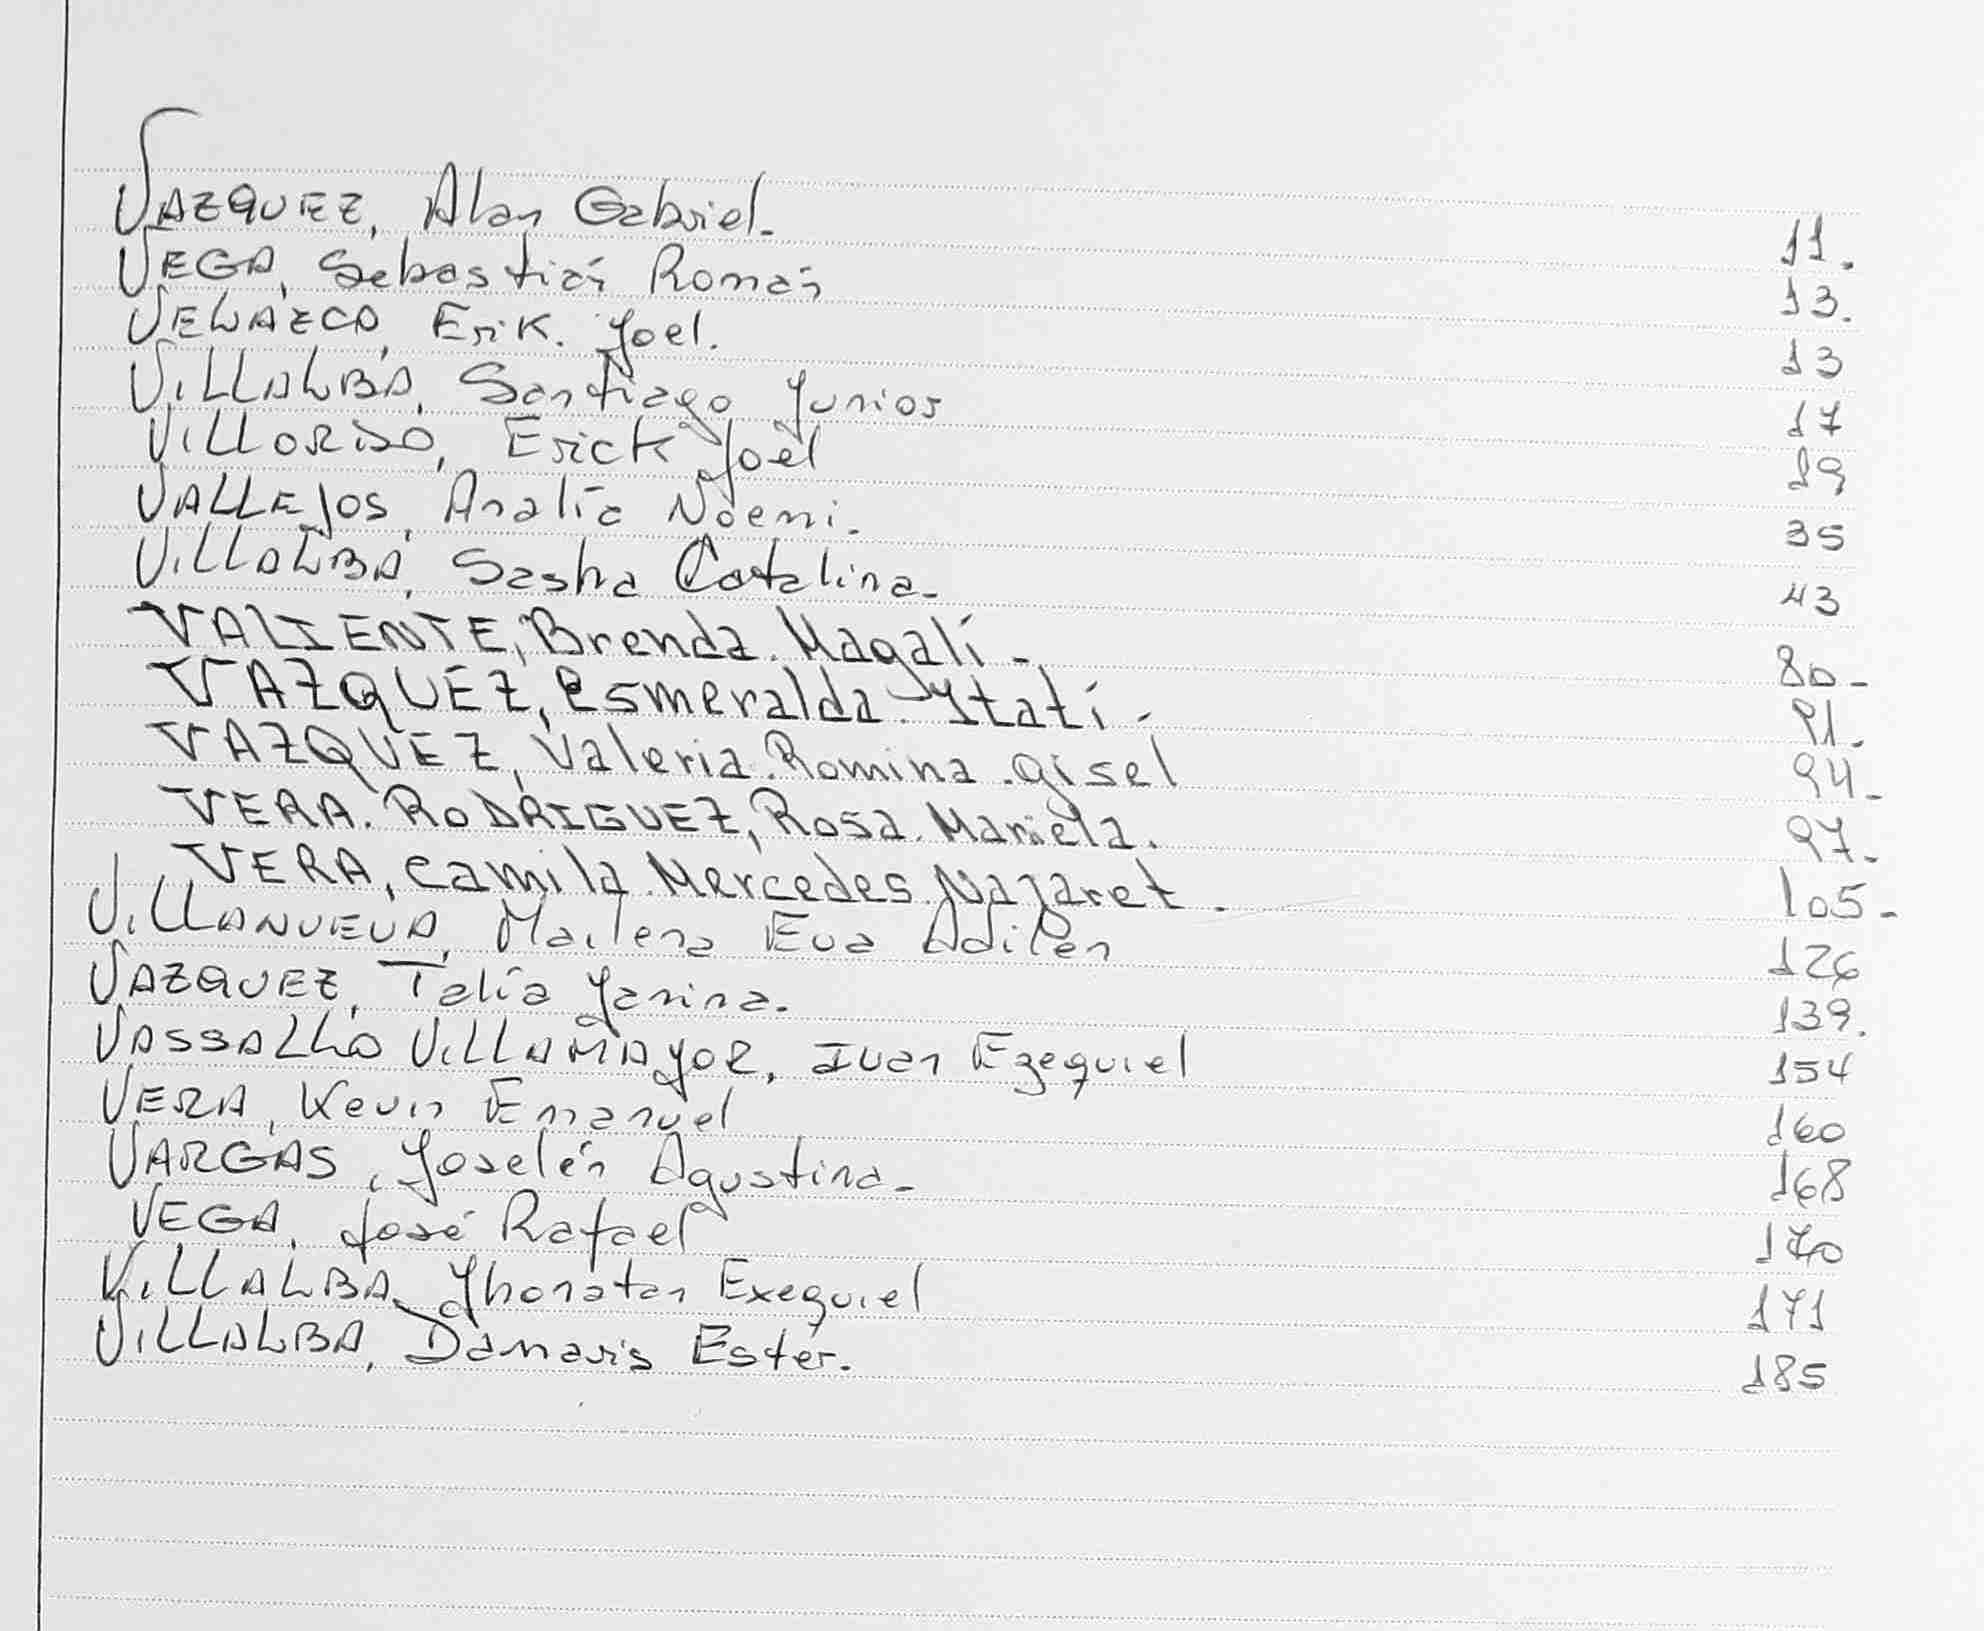 VAZQUEZ, Alan Gabriel. 11.
VEGA, Sebastián Román 13.
VELAZCO, Erik. Joel. 13
VILLALBA, Santiago Junior 17
VILLORDO, Erick Joel 19
VALLEJOS, Analía Noemi. 35
VILLALBA, Sasha Catalina. 43
VALIENTE, Brenda. Magalí - 80-
VAZQUEZ, Esmeralda Itatí - 91.
VAZQUEZ, Valeria. Romina. Gisel 94-
VERA. RODRIGUEZ, Rosa. Mariela. 97-
VERA, Camila. Mercedes. Nazaret. 105-
VILLANUEVA, Mailena Eva Adilén 126
VAZQUEZ, Talía Yanina. 139.
VASSALLO VILLAMAYOR, Ivan Ezequiel 154
VERA, Kevin Emanuel 160
VARGAS, Joselén Agustina- 168
VEGA, José Rafael 170
VILLALBA, Jhonatan Exequiel 171
VILLALBA, Damaris Ester. 185